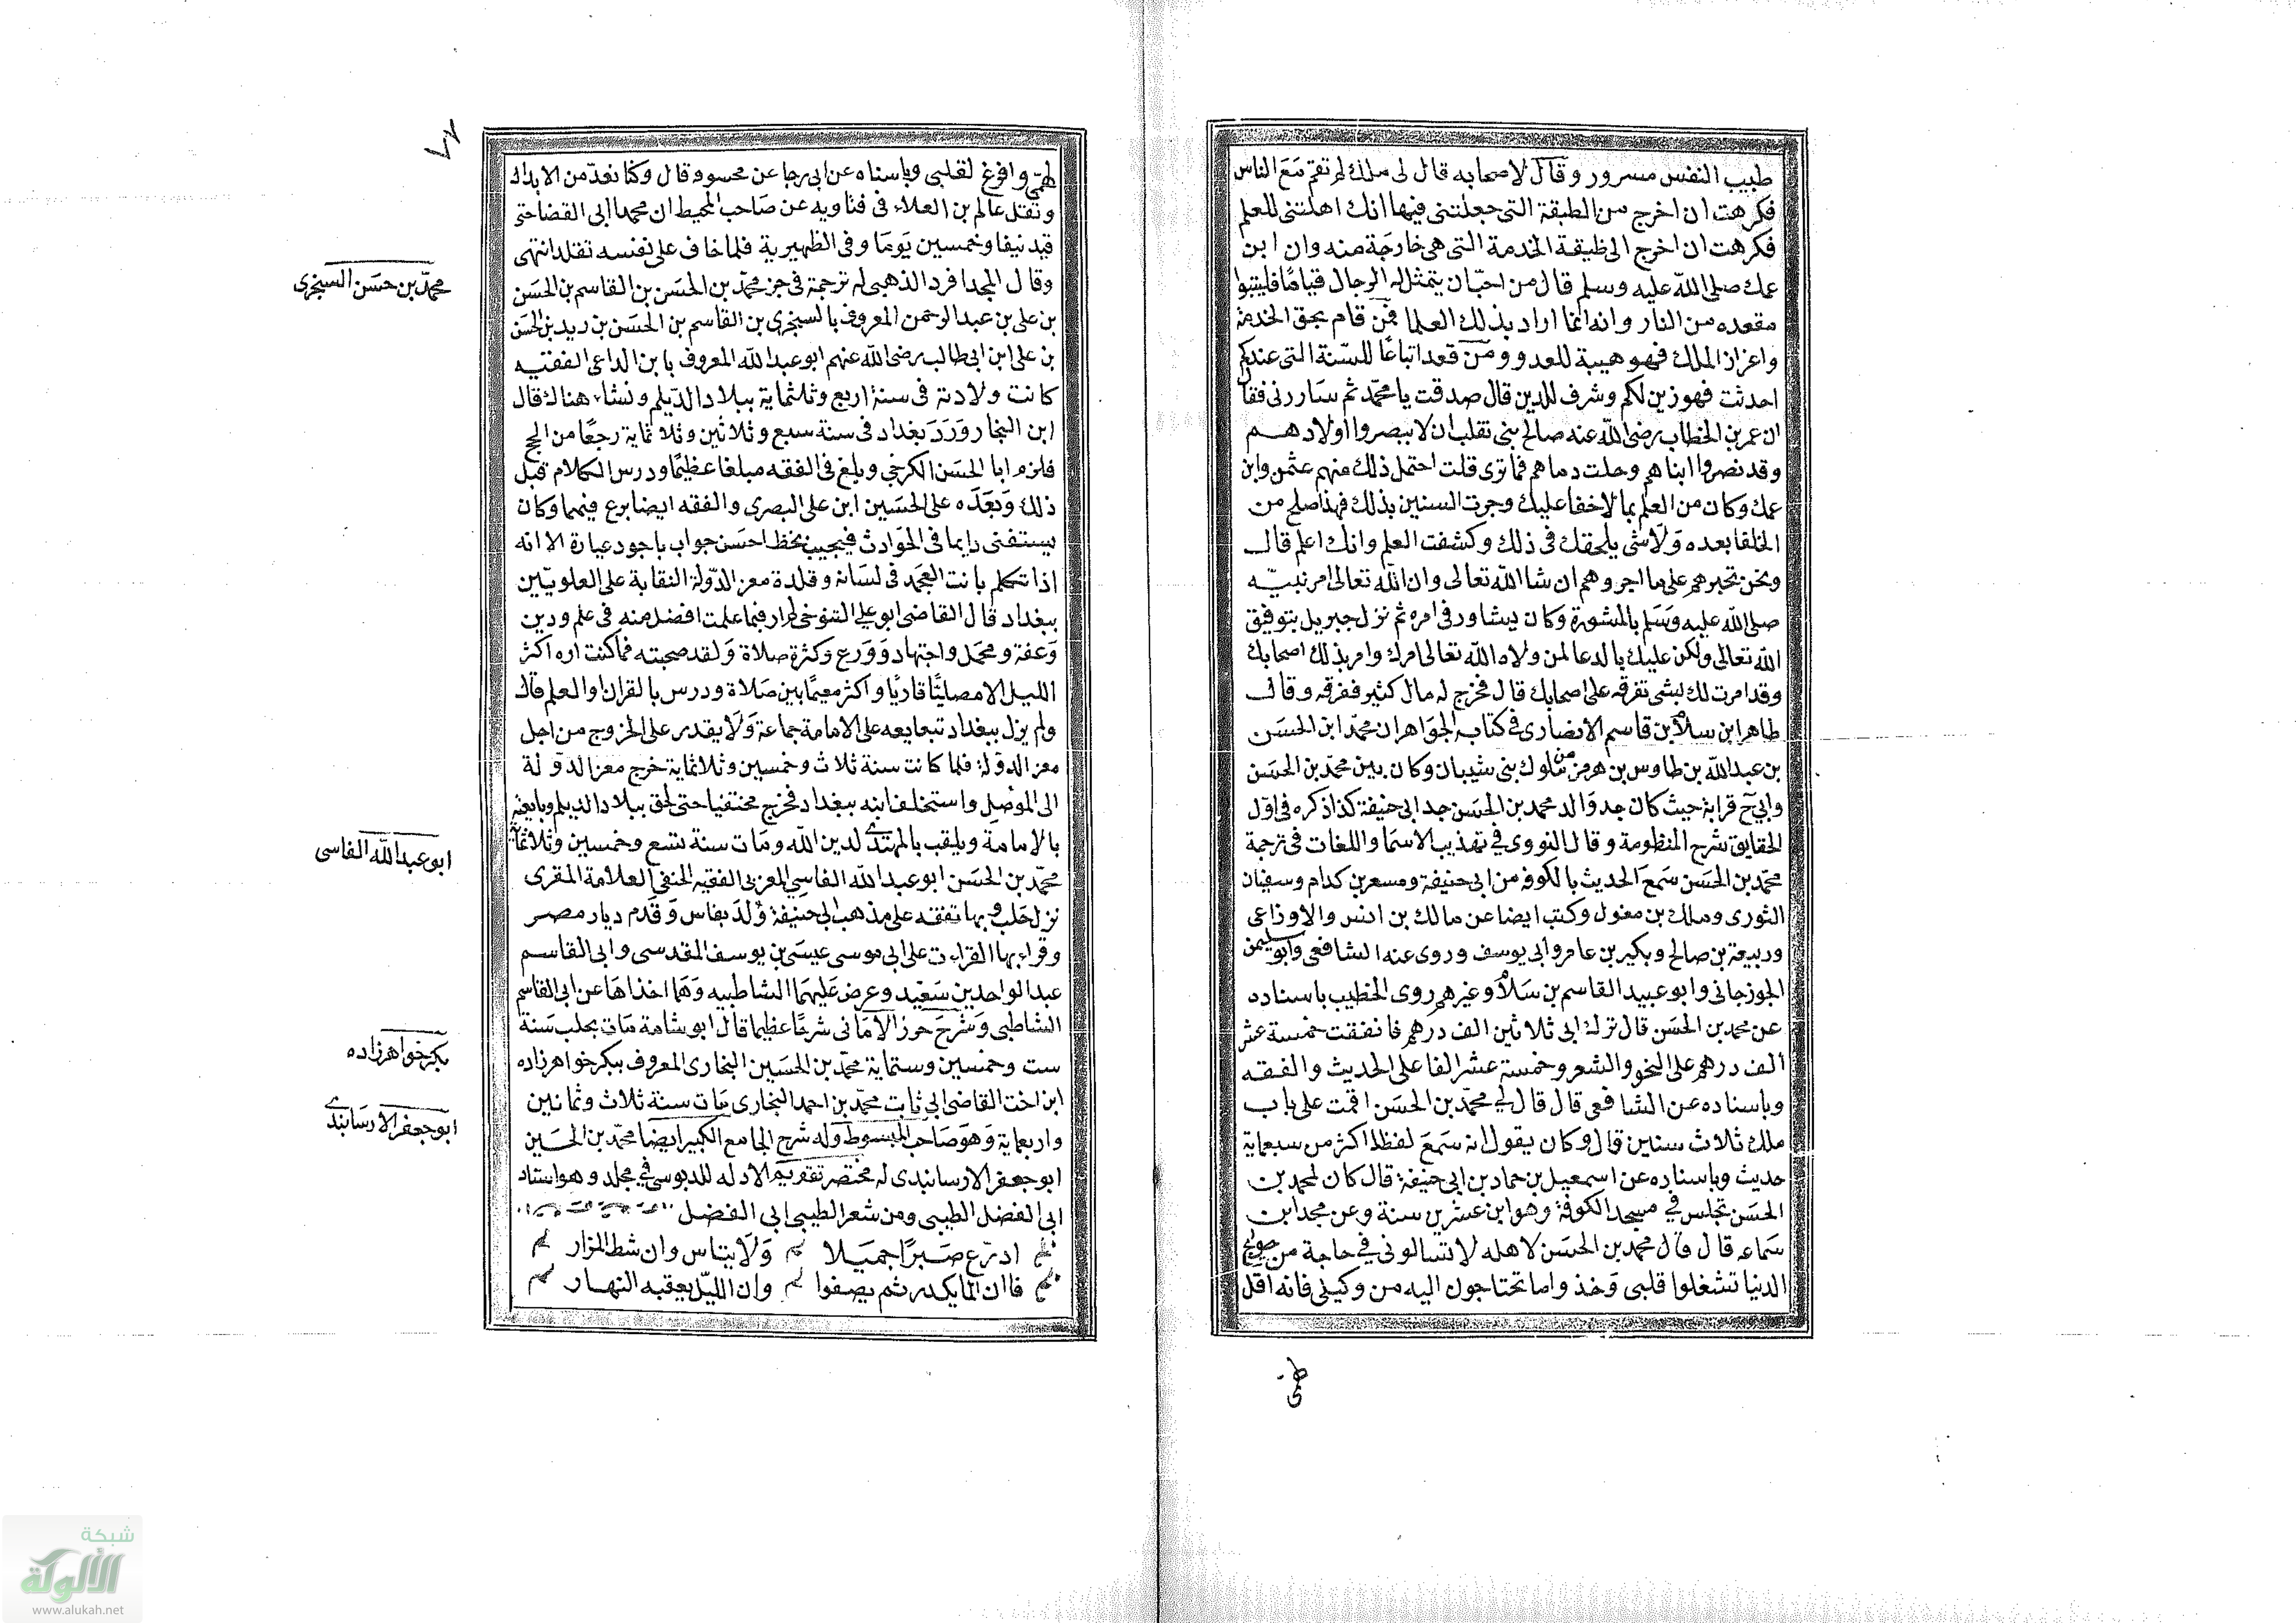 طيب النفس مسرور وقال لاصحابه قال لى ملك لم تقم مع الناس
فكرهت ان اخرج من الطبقة التى جعلتنى فيها انك اهلتنى للعلم
فكرهت ان اخرج الى طبقة الخدمة التى هى خارجة منه وان ابن
عمك صلى الله عليه وسلم قال من احب ان يتمثل له الرجال قياما فليتبوا
مقعده من النار وانه انما اراد بذلك العلما فمن قام بحق الخدمة
واعزاز الملك فهو هيبة للعدو ومن قعد اتباعا للسنة التى عندكم
احدثت فهو زين لكم وشرف للدين قال صدقت يا محمد ثم ساررنى فقال
ان عمر بن الخطاب رضى الله عنه صالح بنى تقلب ان لا ينصروا اولادهم
وقد نصروا ابناهم وحلت دماهم فما ترى قلت احتمل ذلك منهم عثمن وابن
عمك وكان من العلم بما لاخفا عليك وجرت السنين بذلك فهذا صلح من
الخلفا بعده ولا شى يلحقك فى ذلك وكشفت العلم وانك اعلم قال
ونحن نجيرهم على ما اجروهم ان شا الله تعالى وان الله تعالى امر نبيه
صلى الله عليه وسلم بالمشورة وكان يشاور فى امره ثم نزل جبريل بتوفيق
الله تعالى ولكن عليك بالدعا لمن ولاه الله تعالى امرك وامر بذلك اصحابك
وقد امرت لك بشى تفرقه على اصحابك قال فخرج له مال كثير ففرقه وقال
طاهر ابن سلام بن قاسم الانصارى فى كتابه الجواهر ان محمد ابن الحسن
بن عبد الله بن طاوس بن هرمز من ملوك بنى شيبان وكان بين محمد بن الحسن
وابى ح قرابة حيث كان جد والد محمد بن الحسن جد ابى حنيفة كذا ذكره فى اول
الحقايق شرح المنظومة وقال النووى فى تهذيب الاسما واللغات فى ترجمة
محمد بن الحسن سمع الحديث بالكوفه من ابى حنيفة ومسعر بن كدام وسفيان
الثورى وملك بن مغول وكتب ايضا عن مالك بن انس والاوزاعى
وربيعة بن صالح وبكير بن عامر وابى يوسف وروى عنه الشافعى وابو سليمن
الجوزجانى وابو عبيد القاسم بن سلام وغيرهم روى الخطيب باسناده
عن محمد بن الحسن قال ترك ابى ثلاثين الف درهم فانفقت خمسة عشر
الف درهم على النحو والشعر وخمسة عشر الفا على الحديث والفقه
وباسناده عن الشافعى قال قال لى محمد بن الحسن اقمت على باب
ملك ثلاث سنين قال وكان يقول انه سمع لفظا اكثر من سبعماية
حديث وباسناده عن اسمعيل بن حماد بن ابى حنيفة قال كان لمحمد بن
الحسن مجلس فى مسجد الكوفة وهو ابن عشرين سنة وعن محمد ابن
سماعه قال قال محمد بن الحسن لاهله لا تسالونى فى حاجة من حوايج
الدنيا تشغلوا قلبى وخذوا ما تحتاجون اليه من وكيلى فانه اقل
همى
لهمى وافرغ لقلبى وباسناه عن ابى رجا عن محسوه قال وكنا نعد من الابدال
ونقل عالم بن العلاء فى فتاويه عن صاحب المحيط ان محمدا ابى القضا حتى
قيد نيفا وخمسين يوما وفى الظهيرية فلما خاف على نفسه تقلد انتهى
وقال المجد افرد الذهبى له ترجمة فى جز محمد بن الحسن بن القاسم بن الحسن
بن على بن عبد الرحمن المعروف بالسنجرى بن القاسم بن الحسن بن زيد بن الحسن
بن على ابن ابى طالب رضى الله عنهم ابو عبد الله المعروف بابن الداعى الفقيه
كانت ولادته فى سنة اربع وثلثماية ببلاد الديلم ونشاء هناك قال
ابن النجار وورد بغداد فى سنة سبع وثلاثين وثلاثماية رجعا من الحج
فلزم ابا الحسن الكرخى وبلغ فى الفقه مبلغا عظيما ودرس الكلام قبل
ذلك وبعده على الحسين ابن على البصرى والفقه ايضا برع فيهما وكان
يستفتى دايما فى الحوادث فيجيب بخط احسن جواب باجود عبارة الا انه
اذا تكلم بانت العجمة فى لسانه وقلده معز الدولة النقابة على العلويين
ببغداد قال القاضى ابو على التنوخى فما علمت افضل منه فى علم ودين
وعفة ومحمل واجتهاد وورع وكثرة صلاة ولقد صحبته فما كنت اره اكثر
الليل الا مصليا قاريا واكثر معيما بين صلاة ودرس بالقران او العلم قال
ولم يزل ببغداد تبعايعه على الامامة جماعة ولا يقدر على الخروج من اجل
معز الدولة فلما كانت سنة ثلاث وخمسين وثلاثماية خرج معز الدولة
الى الموصل واستخلف ابنه ببغداد فخرج مختفيا حتى لحق ببلاد الديلم وبايعته
بالامامة ويلقب بالمهتدى لدين الله ومات سنة تسع وخمسين وثلاثماية
محمد بن الحسن ابو عبد الله الفاسى المغربى الفقيه الحنفى العلامة المقرى
نزل حلب وبها تفقه على مذهب ابى حنيفة ولد بفاس وقدم ديار مصر
وقراء بها القراءت على ابى موسى عيسى بن يوسف المقدسى وابى القاسم
عبد الواحد بن سعيد وعرض عليهما الشاطبيه وهما اخذاها عن ابى القاسم
الشاطبى وشرح حوز الامانى شرحا عظيما قال ابو شامة مات بحلب سنة
ست وخمسين وستماية محمد بن الحسين البخارى المعروف ببكر خواهرزاده
ابن اخت القاضى ابى ثابت محمد بن احمد البخارى مات سنة ثلاث وثمانين
واربعماية وهو صاحب المبسوط وله شرح الجامع الكبير ايضا محمد بن الحسين
ابو جعفر الارسابندى له مختصر تقويم الادله للدبوسى فى مجلد وهو استاد
ابى الفضل الطيبى ومن شعر الطيبى ابى الفضل
ادرع صبرا جميلا ولا يتاس وان شط المزار
فاان الما يكدر ثم يصفوا وان الليل يعقبه النهار
محمد بن حسن السنجرى
ابو عبد الله الفاسى
بكر خواهرزاده
ابو جعفر الارسابندى
شبكة
الألوكة
www.alukah.net